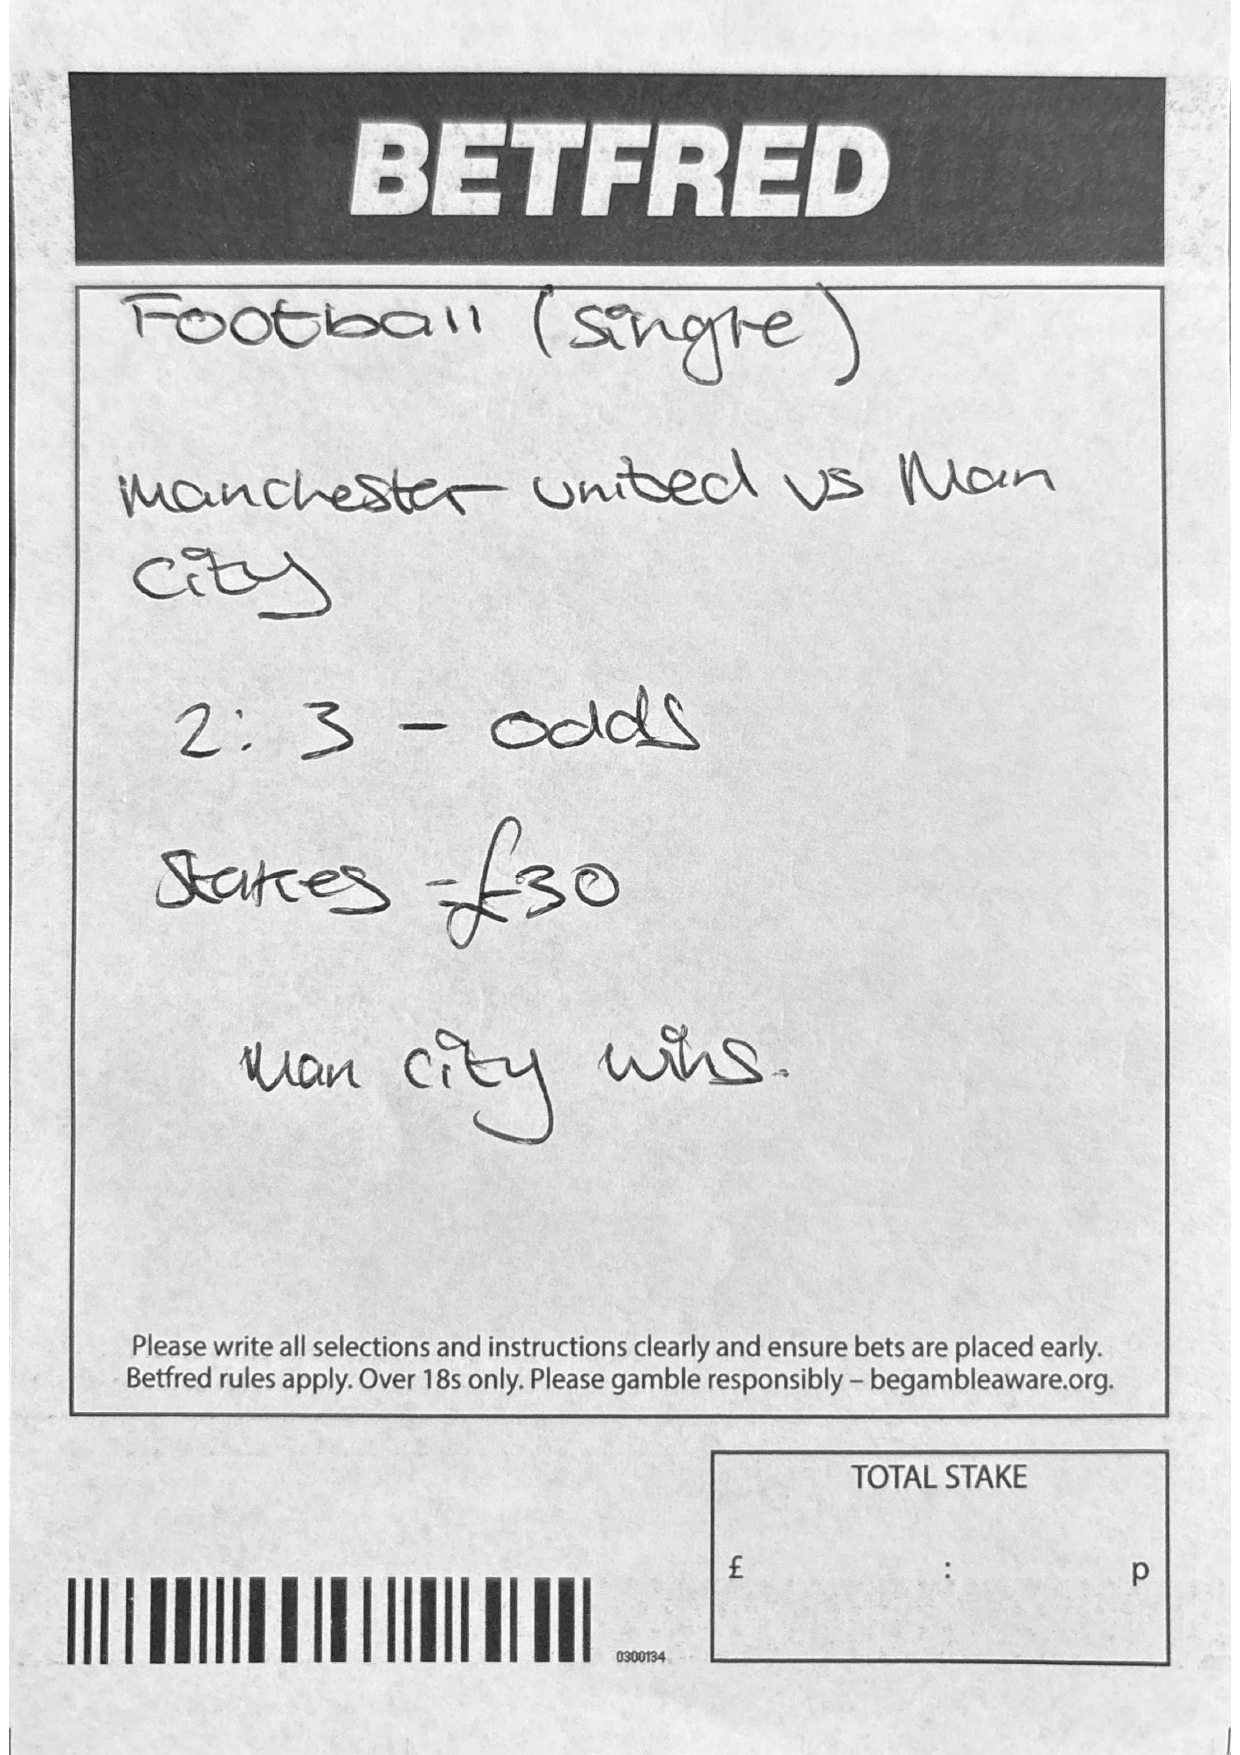 BETFRED
Football (single)
Manchester united vs Man
city
2: 3 - odds
Stakes = £30
Man city wins.
Please write all selections and instructions clearly and ensure bets are placed early.
Betfred rules apply. Over 18s only. Please gamble responsibly – begambleaware.org.
TOTAL STAKE
£ : p
0300134